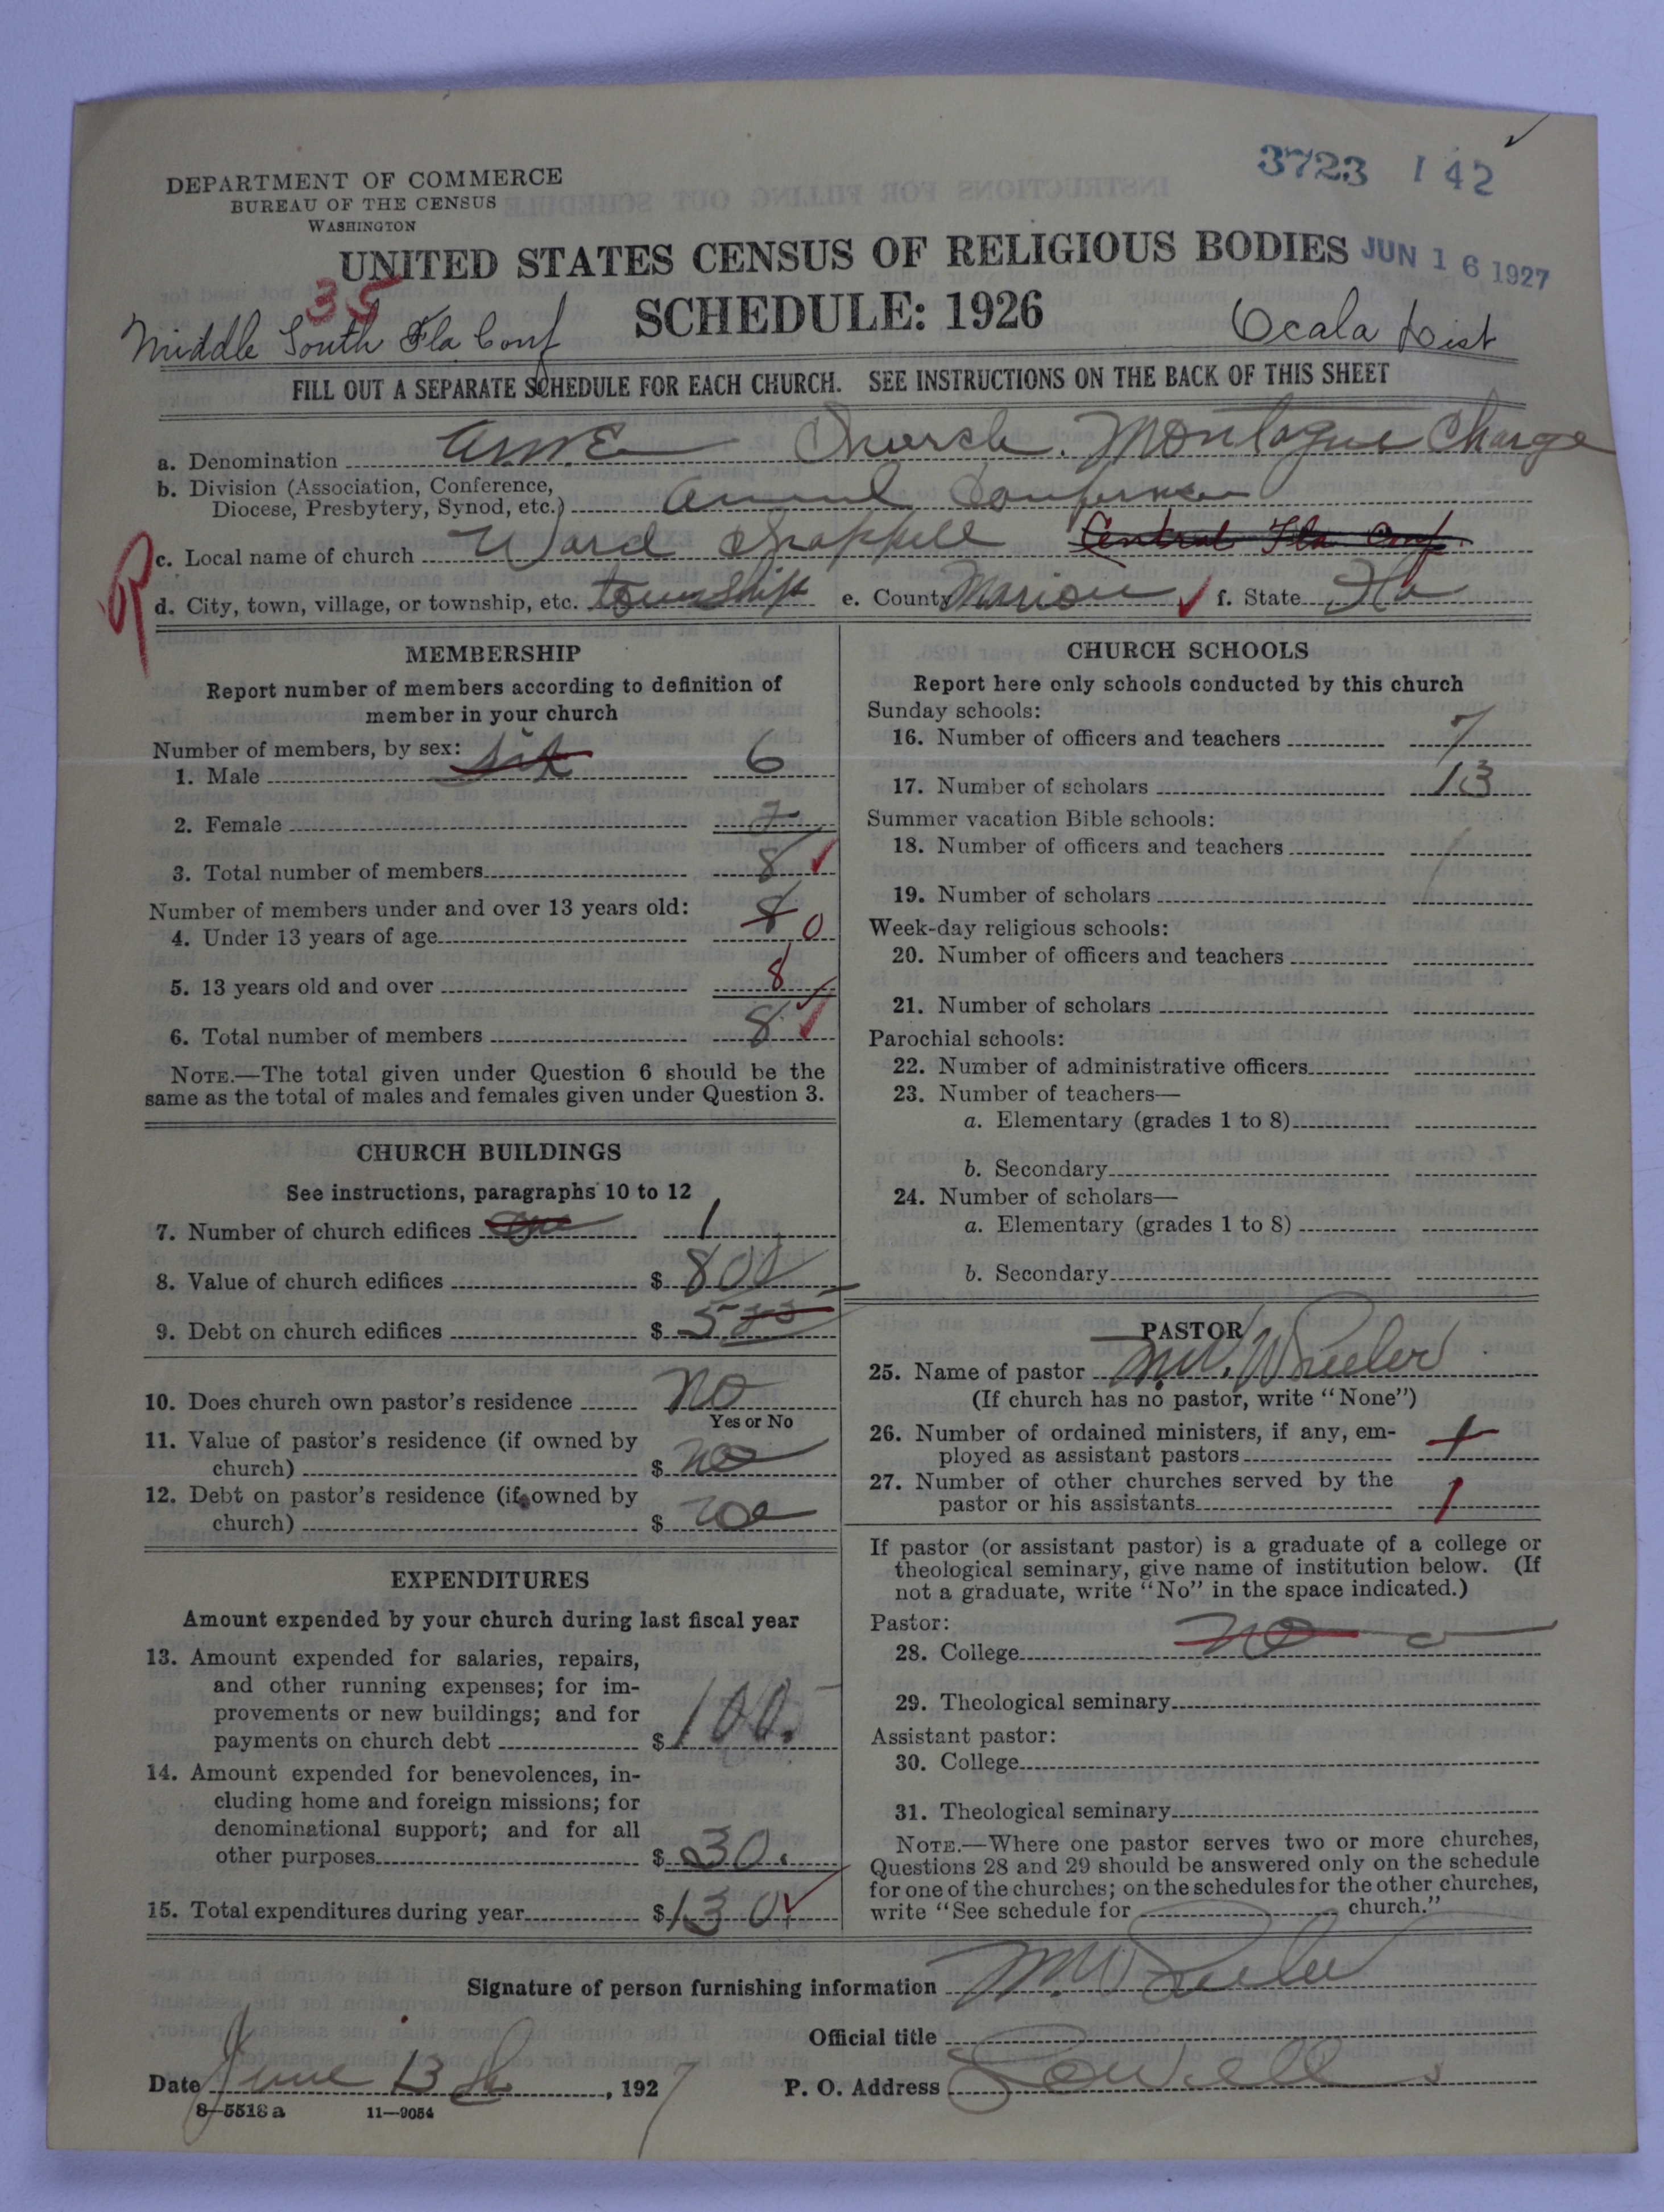 3723 142
DEPARTMENT OF COMMERCE
BUREAU OF THE CENSUS
WASHINGTON
UNITED STATES CENSUS OF RELIGIOUS BODIES
JUN 16 1927
35
SCHEDULE: 1926
Middle South Fla Conf
Ocala Dist
FILL OUT A SEPARATE SCHEDULE FOR EACH CHURCH. SEE INSTRUCTIONS ON THE BACK OF THIS SHEET
a. Denomination A.M.E. Church. Montague Charge
b. Division (Association, Conference,
Diocese, Presbytery, Synod, etc.) Conference
c. Local name of church Ward Central Fla Conf
d. City, town, village, or township, etc. township e. County Marion f. State Fla
MEMBERSHIP
Report number of members according to definition of
member in your church
Number of members, by sex:
1. Male six 6
2. Female 2
3. Total number of members 8
Number of members under and over 13 years old:
4. Under 13 years of age 8 0
5. 13 years old and over 8
6. Total number of members 8
NOTE.—The total given under Question 6 should be the
same as the total of males and females given under Question 3.
CHURCH BUILDINGS
See instructions, paragraphs 10 to 12
7. Number of church edifices one 1
8. Value of church edifices $ 800
9. Debt on church edifices $
10. Does church own pastor's residence No
Yes or No
11. Value of pastor's residence (if owned by
church) $ no
12. Debt on pastor's residence (if owned by
church) $
EXPENDITURES
Amount expended by your church during last fiscal year
13. Amount expended for salaries, repairs,
and other running expenses; for im-
provements or new buildings; and for
payments on church debt $ 100.
14. Amount expended for benevolences, in-
cluding home and foreign missions; for
denominational support; and for all
other purposes $ 30.
15. Total expenditures during year $ 130.
CHURCH SCHOOLS
Report here only schools conducted by this church
Sunday schools:
16. Number of officers and teachers 7
17. Number of scholars 13
Summer vacation Bible schools:
18. Number of officers and teachers
19. Number of scholars
Week-day religious schools:
20. Number of officers and teachers
21. Number of scholars
Parochial schools:
22. Number of administrative officers
23. Number of teachers—
a. Elementary (grades 1 to 8)
b. Secondary
24. Number of scholars—
a. Elementary (grades 1 to 8)
b. Secondary
PASTOR
25. Name of pastor M. W. Wheeler
(If church has no pastor, write "None")
26. Number of ordained ministers, if any, em-
ployed as assistant pastors 1
27. Number of other churches served by the
pastor or his assistants 1
If pastor (or assistant pastor) is a graduate of a college or
theological seminary, give name of institution below. (If
not a graduate, write "No" in the space indicated.)
Pastor:
28. College no
29. Theological seminary
Assistant pastor:
30. College
31. Theological seminary
NOTE.—Where one pastor serves two or more churches,
Questions 28 and 29 should be answered only on the schedule
for one of the churches; on the schedules for the other churches,
write "See schedule for church."
Signature of person furnishing information M. Wheeler
Official title
Date June 13 , 1927
P. O. Address Lowell
8—5518a 11—9054